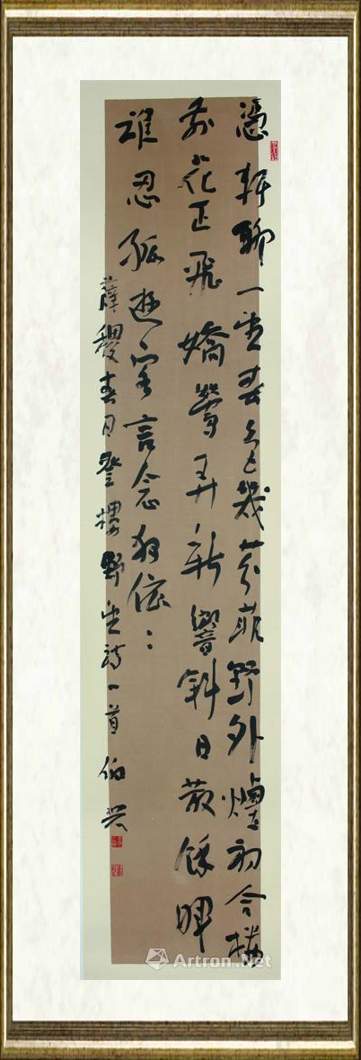 憑軒聊一望春色幾芬菲野外煙初合樓
前花正飛嬌鶯弄新響斜日散餘暉
誰忍孤遊客言念獨依:
薛稷春日登樓野望詩一首 伯
Artron.Net